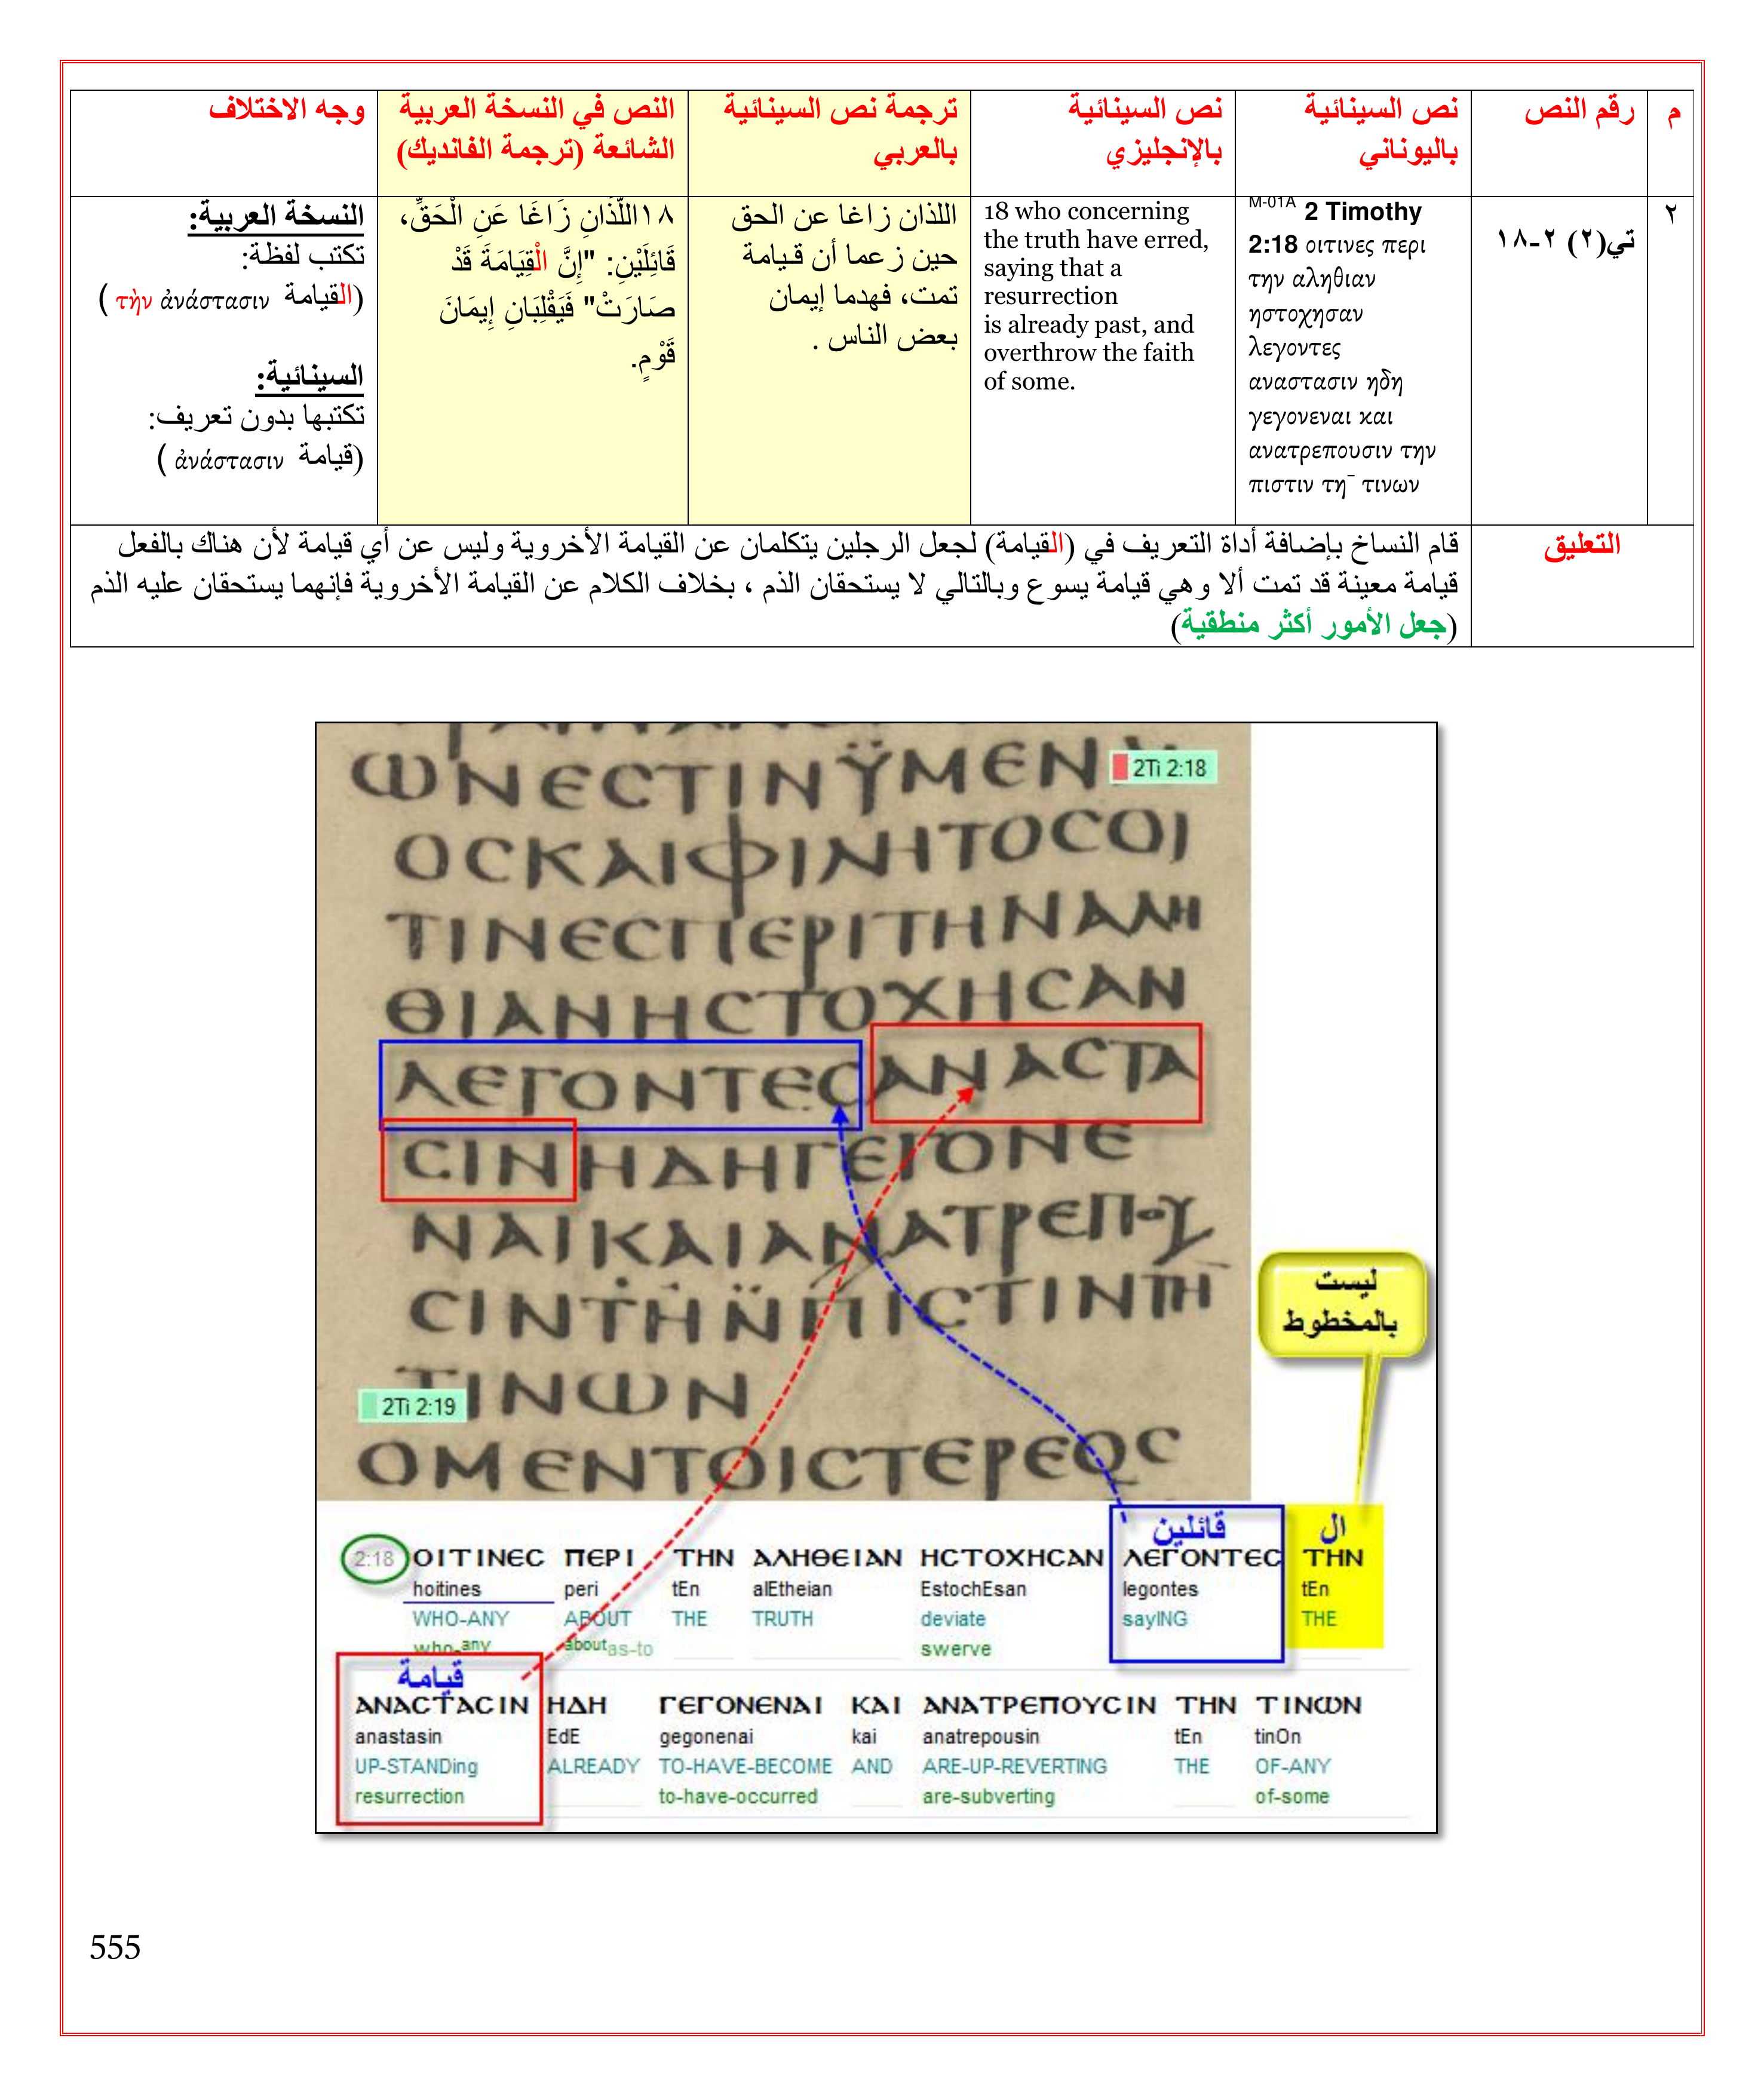 م
رقم النص
نص السينائية
باليوناني
نص السينائية
بالإنجليزي
ترجمة نص السينائية
بالعربي
النص في النسخة العربية
الشائعة (ترجمة الفانديك)
وجه الاختلاف
٢
تي(٢) ٢-١٨
M-01A 2 Timothy
2:18 οιτινες περι
την αληθιαν
ηστοχησαν
λεγοντες
αναστασιν ηδη
γεγονεναι και
ανατρεπουσιν την
πιστιν τη¯ τινων
18 who concerning
the truth have erred,
saying that a
resurrection
is already past, and
overthrow the faith
of some.
اللذان زاغا عن الحق
حين زعما أن قيامة
تمت، فهدما إيمان
بعض الناس .
١٨اللَّذَانِ زَاغَا عَنِ الْحَقِّ،
قَائِلَيْنِ: "إِنَّ الْقِيَامَةَ قَدْ
صَارَتْ" فَيَقْلِبَانِ إِيمَانَ
قَوْمٍ.
النسخة العربية:
تكتب لفظة:
(القيامة τὴν ἀνάστασιν )
السينائية:
تكتبها بدون تعريف:
(قيامة ἀνάστασιν )
التعليق
قام النساخ بإضافة أداة التعريف في (القيامة) لجعل الرجلين يتكلمان عن القيامة الأخروية وليس عن أي قيامة لأن هناك بالفعل
قيامة معينة قد تمت ألا وهي قيامة يسوع وبالتالي لا يستحقان الذم ، بخلاف الكلام عن القيامة الأخروية فإنهما يستحقان عليه الذم
(جعل الأمور أكثر منطقية)
ⲰΝЄCΤΙΝΫΜЄΝ
2Ti 2:18
ΟCΚΑΙΦΙΛΗΤΟCΟΙ
ΤΙΝЄCΠЄΡΙΤΗΝΑΛΗ
ΘΙΑΝΗCΤΟΧΗCΑΝ
ΛЄΓΟΝΤЄCΑΝΑCΤΑ
CΙΝΗΔΗΓЄΓΟΝЄ
ΝΑΙΚΑΙΑΝΑΤΡЄΠΟΥ
CΙΝΤΗΝΠΙCΤΙΝΤΗ¯
ΤΙΝⲰΝ
2Ti 2:19
ΟΜЄΝΤΟΙCΤЄΡЄΟC
ليست
بالمخطوط
قائلين
ال
2:18 ΟΙΤΙΝЄC ΠЄΡΙ ΤΗΝ ΑΛΗΘЄΙΑΝ ΗCΤΟΧΗCΑΝ ΛЄΓΟΝΤЄC ΤΗΝ
hoitines peri tEn alEtheian EstochEsan legontes tEn
WHO-ANY ABOUT THE TRUTH deviate sayING THE
who-any about as-to swerve
قيامة
ΑΝΑCΤΑCΙΝ ΗΔΗ ΓЄΓΟΝЄΝΑΙ ΚΑΙ ΑΝΑΤΡЄΠΟΥCΙΝ ΤΗΝ ΤΙΝⲰΝ
anastasin EdE gegonenai kai anatrepousin tEn tinOn
UP-STANDing ALREADY TO-HAVE-BECOME AND ARE-UP-REVERTING THE OF-ANY
resurrection to-have-occurred are-subverting of-some
555